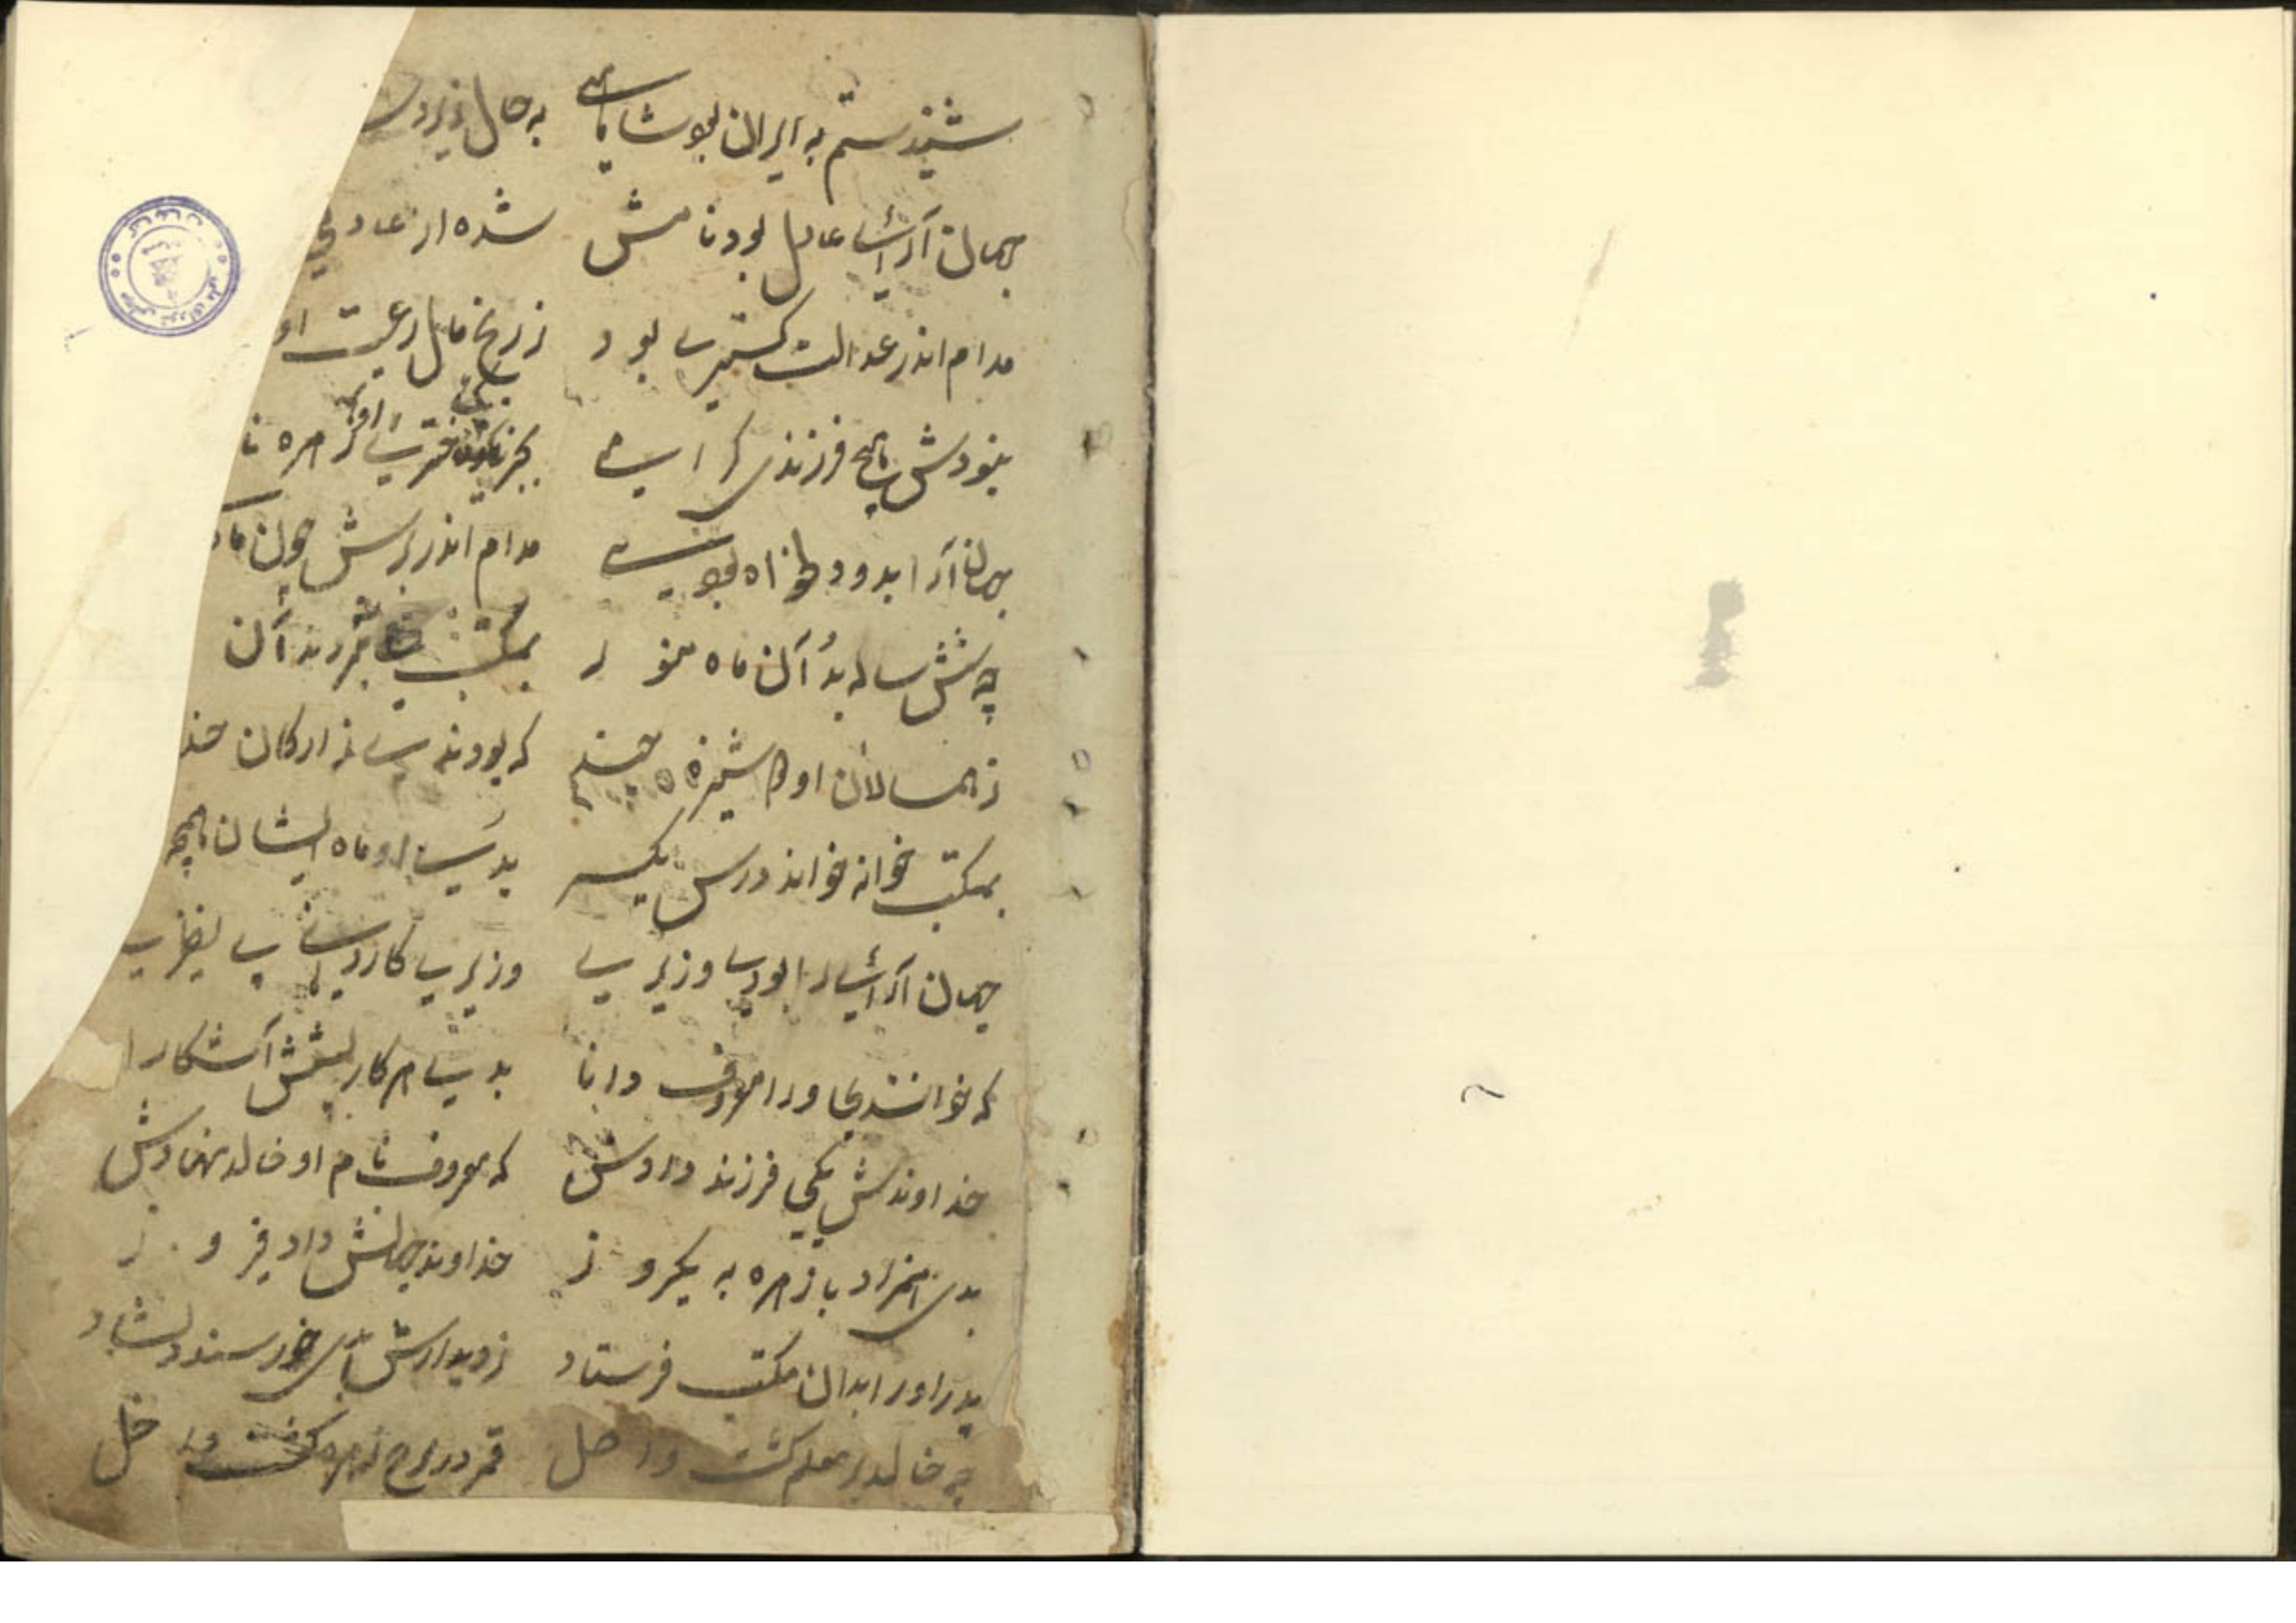 شنیدستم به ایران بود شاهی به حال زیردس
جهان آرای عادل بود نامش شده از عاد
مدام اندر عدالت گستری بود ز رنج مال رعیت
نبودش هیچ فرزند گرامی بجز زهره نا
جهان آرا بدو دلخواه بودی مدام اندر برش چون ماه
چه شش ساله بد آن ماه منور بمکتب آن
ز همسالان او دوشیزه چند که بودند ز ارکان خد
بمکتب خوانه خواند درس یکسر بدی او ماه ایشان همچه
جهان آرای را بودی وزیری وزیری کاردانی بی نظیری
که خواندندی ورا معروف دانا بدی هر کار پیشش آشکارا
خداوندش یکی فرزند دادش که معروف نام او خالد نهادش
بدی همزاد با زهره به یکروز خداوند جهانش داد فیروز
پدر او را بدان مکتب فرستاد ز دیدارش بدی خورسند و دلشاد
چه خالد بر معلم گشت واصل قمر در برج زهره گشت داخل